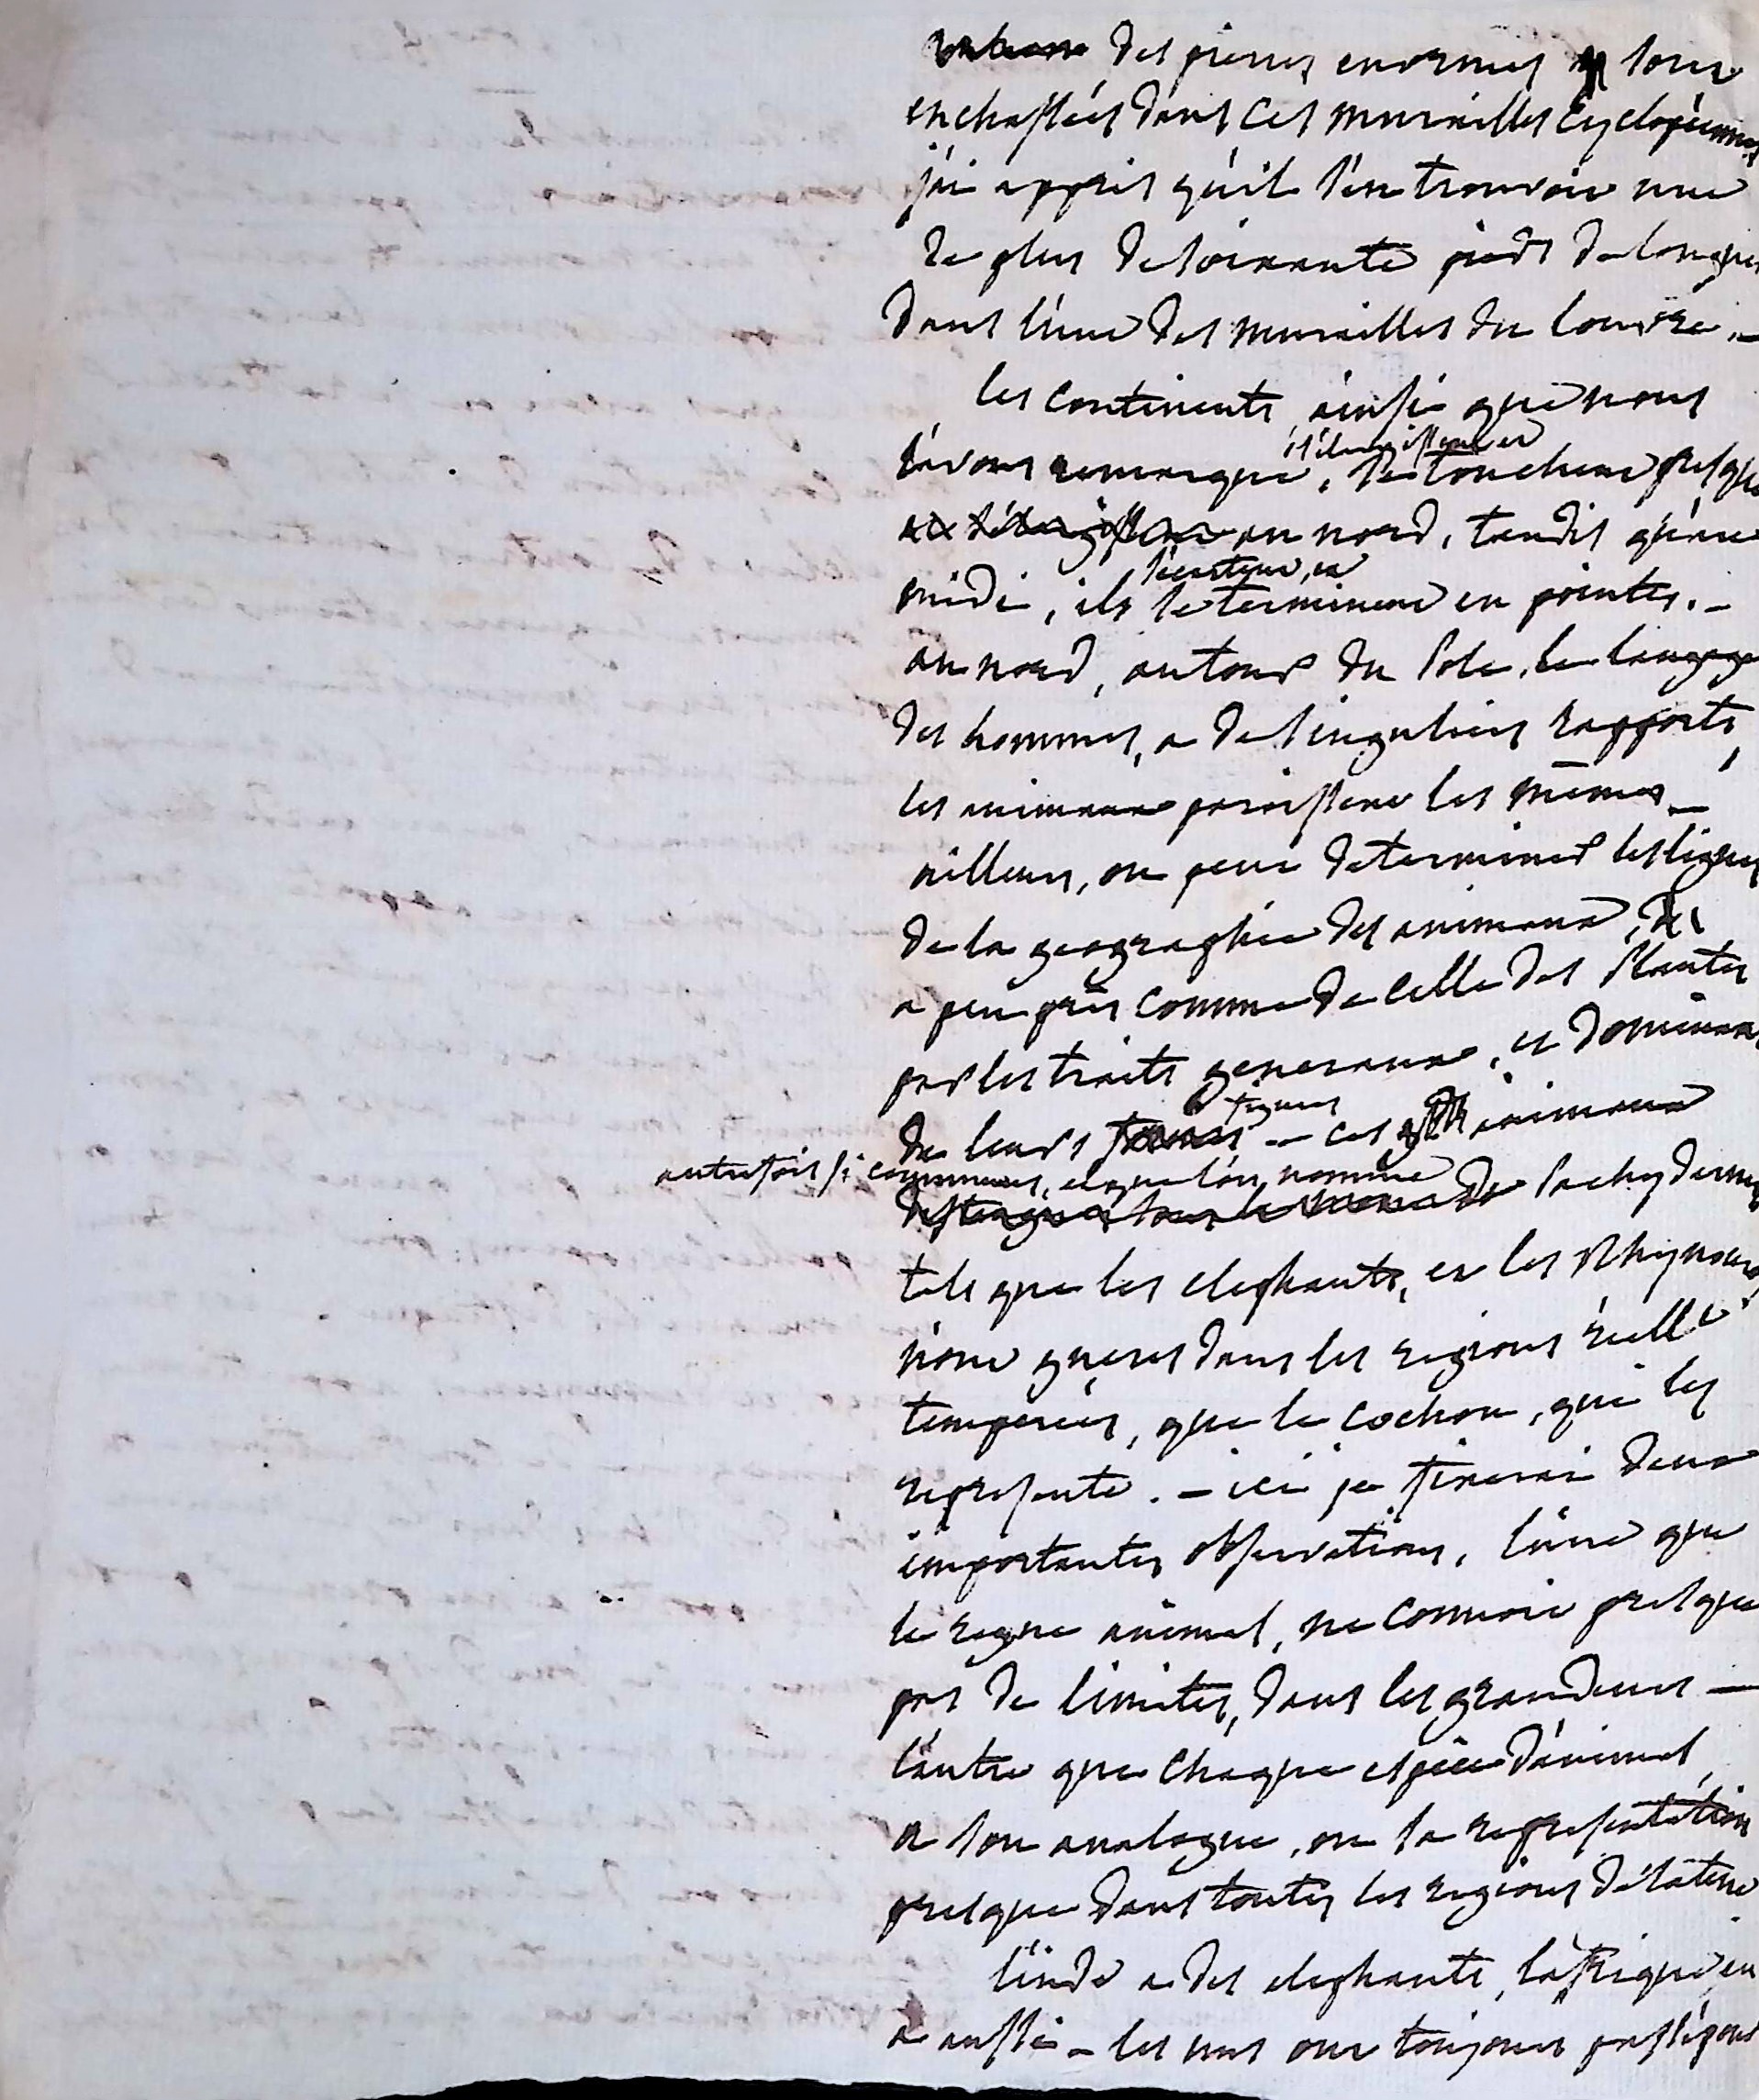 des pierres enormes sont
enchassées dans ces murailles cyclopéennes
j'ai appris qu'il s'en trouvoit une
de plus de soixante pieds de longueur
dans l'une des murailles du louvre. -
les continents ainsi que nous
l'avons remarqué, s'élargissent et se touchent presque
au nord, tandis qu'au
midi, ils s'écartent, et se terminent en pointes. -
au nord, autour du Pole, le langage
des hommes, a de singuliers rapports,
les animaux paroissent les mêmes -
ailleurs, on peut determiner les lignes
de la geographie des animaux,
a peu près comme de celle des Plantes
par les traits generaux, et dominans
de leurs figures - ces animaux
autrefois si communs, et que l'on nomme
Pachydermes
tels que les elephants, et les Rhynoceros
n'ont gueres dans les regions
temperées, que le cochon, qui les
represente. - ici je finerai deux
importantes observations, l'une que
le regne animal, ne connoit presque
pas de limites, dans les grandeurs -
l'autre que chaque espèce d'animal,
a son analogue, ou sa representation
presque dans toutes les regions de la terre
l'inde a des elephants, l'affrique en
a aussi - les uns ont toujours